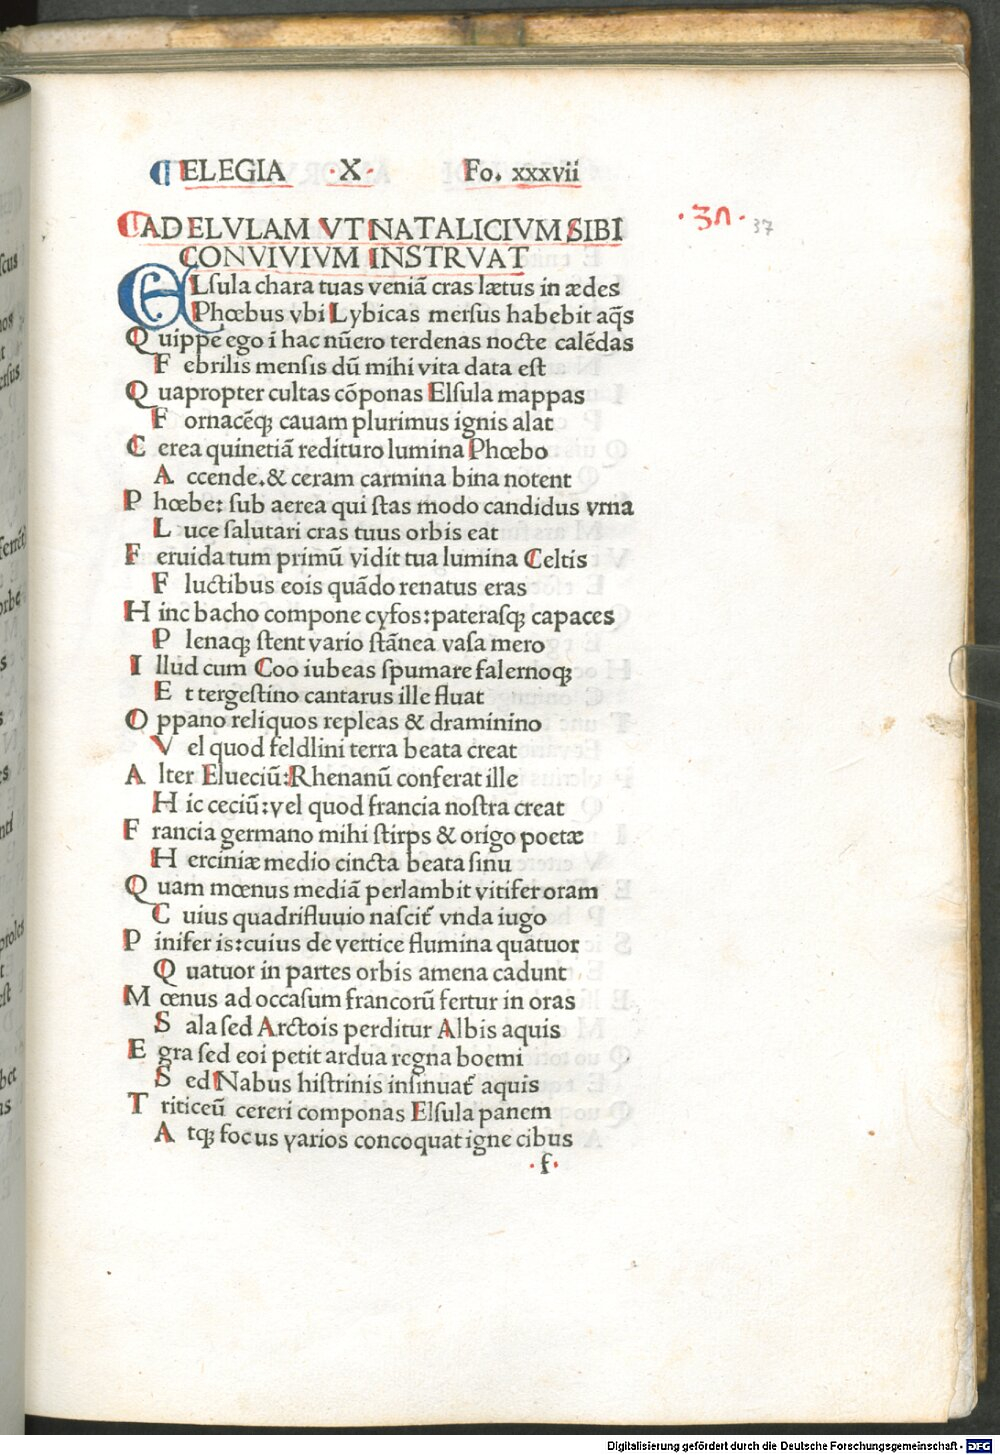 ELEGIA ·X· Fo. xxxvii
AD ELVLAM VT NATALICIVM SIBI
CONVIVIVM INSTRVAT
·37·
37
ELſula chara tuas veniā cras lætus in ædes
Phœbus vbi Lybicas merſus habebit aq̃s
Quippe ego i hac nũero terdenas nocte calēdas
Febrilis menſis dũ mihi vita data eſt
Quapropter cultas cōponas Elſula mappas
Fornacēqꝫ cauam plurimus ignis alat
Cerea quinetiā redituro lumina Phœbo
Accende.& ceram carmina bina notent
Phœbe: ſub aerea qui ſtas modo candidus vrna
Luce ſalutari cras tuus orbis eat
Feruida tum primũ vidit tua lumina Celtis
Fluctibus eois quādo renatus eras
Hinc bacho compone cyfos:pateraſqꝫ capaces
Plenaqꝫ ſtent vario ſtānea vaſa mero
Illud cum Coo iubeas ſpumare falernoqꝫ
Et tergeſtino cantarus ille fluat
Oppano reliquos repleas & draminino
Vel quod feldlini terra beata creat
Alter Elueciũ:Rhenanũ conferat ille
Hic ceciũ:vel quod francia noſtra creat
Francia germano mihi ſtirps & origo poetæ
Herciniæ medio cincta beata ſinu
Quam mœnus mediā perlambit vitifer oram
Cuius quadrifluuio naſcit᷑ vnda iugo
Pinifer is:cuius de vertice flumina quatuor
Quatuor in partes orbis amena cadunt
Mœnus ad occaſum francorũ fertur in oras
Sala ſed Arctois perditur Albis aquis
Egra ſed eoi petit ardua regna boemi
Sed Nabus hiſtrinis inſinuat᷑ aquis
Triticeũ cereri componas Elſula panem
Atqꝫ focus varios concoquat igne cibus
·f·
Digitalisierung gefördert durch die Deutsche Forschungsgemeinschaft - DFG